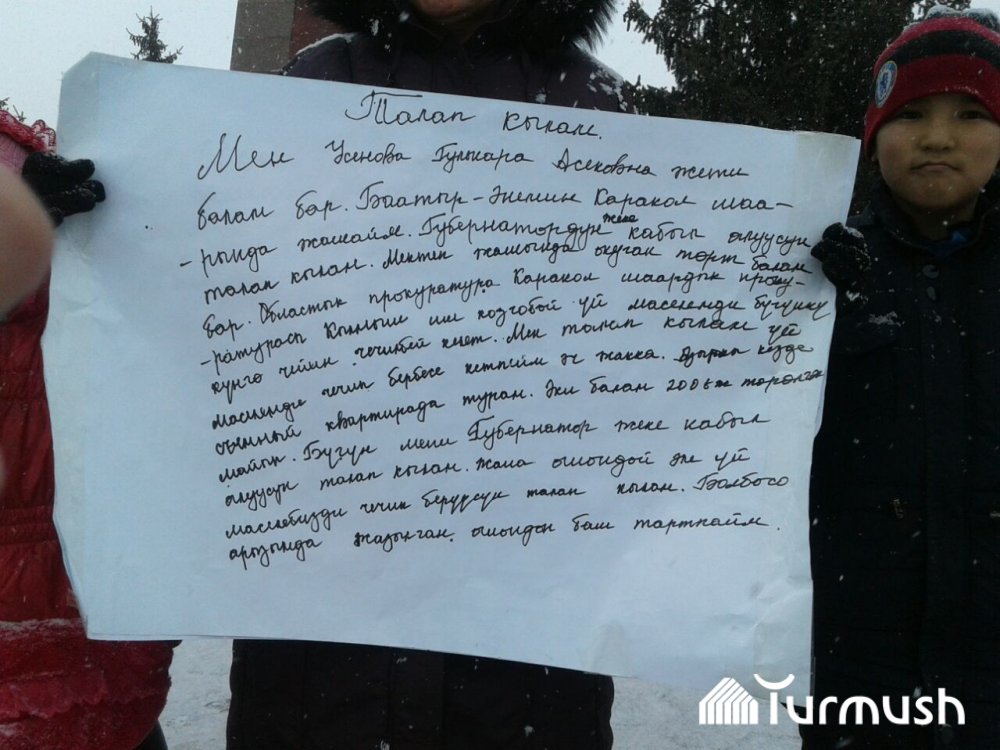 Талап кылам.
Мен Усенова Гулнара Асековна жети
балам бар. Баатыр-Энемин Каракол шаа-
-рында жашайм. Губернатордун жеке кабыл алуусун
талап кылам. Мектеп жашында окуган төрт балам
бар. Областык прокуратура Каракол шаардык проку-
-ратурасы Кылмыш иш козгобой үй маселемди бүгүнкү
күнгө чейин чечпей келет. Мен талап кылам үй
маселемди чечип бербесе кетпейм эч жакка. Азыркы кезде
съемный квартирада турам. Эки балам 200%
майып. Бүгүн мени Губернатор жеке кабыл
алуусун талап кылам. Жана ошондой эле үй
маселебизди чечип берүүсүн талап кылам. Болбосо
арызымда жазылган. ошондон баш тартпайм.
Turmush